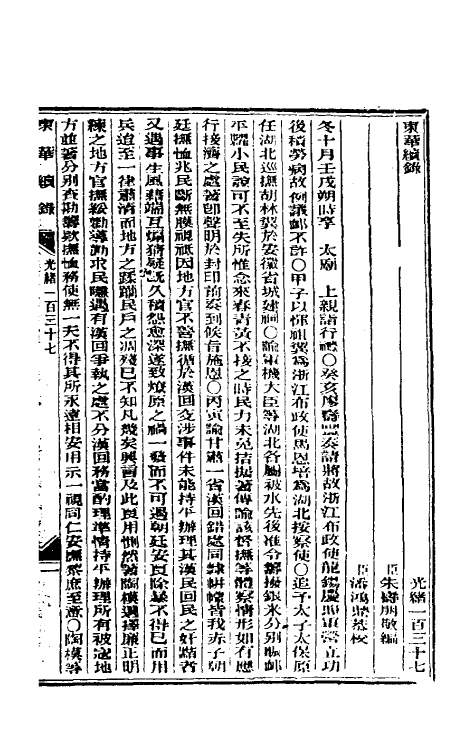 東華續錄
光緒一百三十七
臣朱壽朋敬編
臣潘鴻鼎恭校
冬十月壬戌朔時享　太廟　上親詣行禮〇癸亥廖壽豐奏請將故浙江布政使龍錫慶照軍營立功
後積勞病故例議卹不許〇甲子以惲祖翼為浙江布政使馬恩培為湖北按察使〇追予太子太保原
任湖北巡撫胡林翼於安徽省城建祠〇諭軍機大臣等湖北各屬被水先後准令籌撥銀米分別賑卹
平糶小民諒可不至失所惟念來春青黃不接之時民力未免拮据著傳諭該督撫等體察情形如有應
行接濟之處著即聲明於封印前奏到候旨施恩〇丙寅諭甘肅一省漢回錯處同隸帡幪皆我赤子朝
廷撫恤兆民斷無膜視祇因地方官不善撫循於漢回交涉事件未能持平辦理其漢民回民之好黠者
又遇事生風藉端互煽猜疑既久積怨愈深遂致燎原之禍一發而不可遏朝廷安良除暴不得已而用
兵迨至一律肅清而地方之蹂躪民戶之凋殘已不知凡幾矣興言及此良用惻然著陶模選擇廉正明
練之地方官撫綏勸導勤求民瘼遇有漢回爭執之處不分漢回務當酌理準情持平辦理所有被寇地
方並著分別查勘籌款撫恤務使無一夫不得其所永遠相安用示一視同仁安撫黎庶至意〇陶模等
東華續錄
光緒一百三十七
一